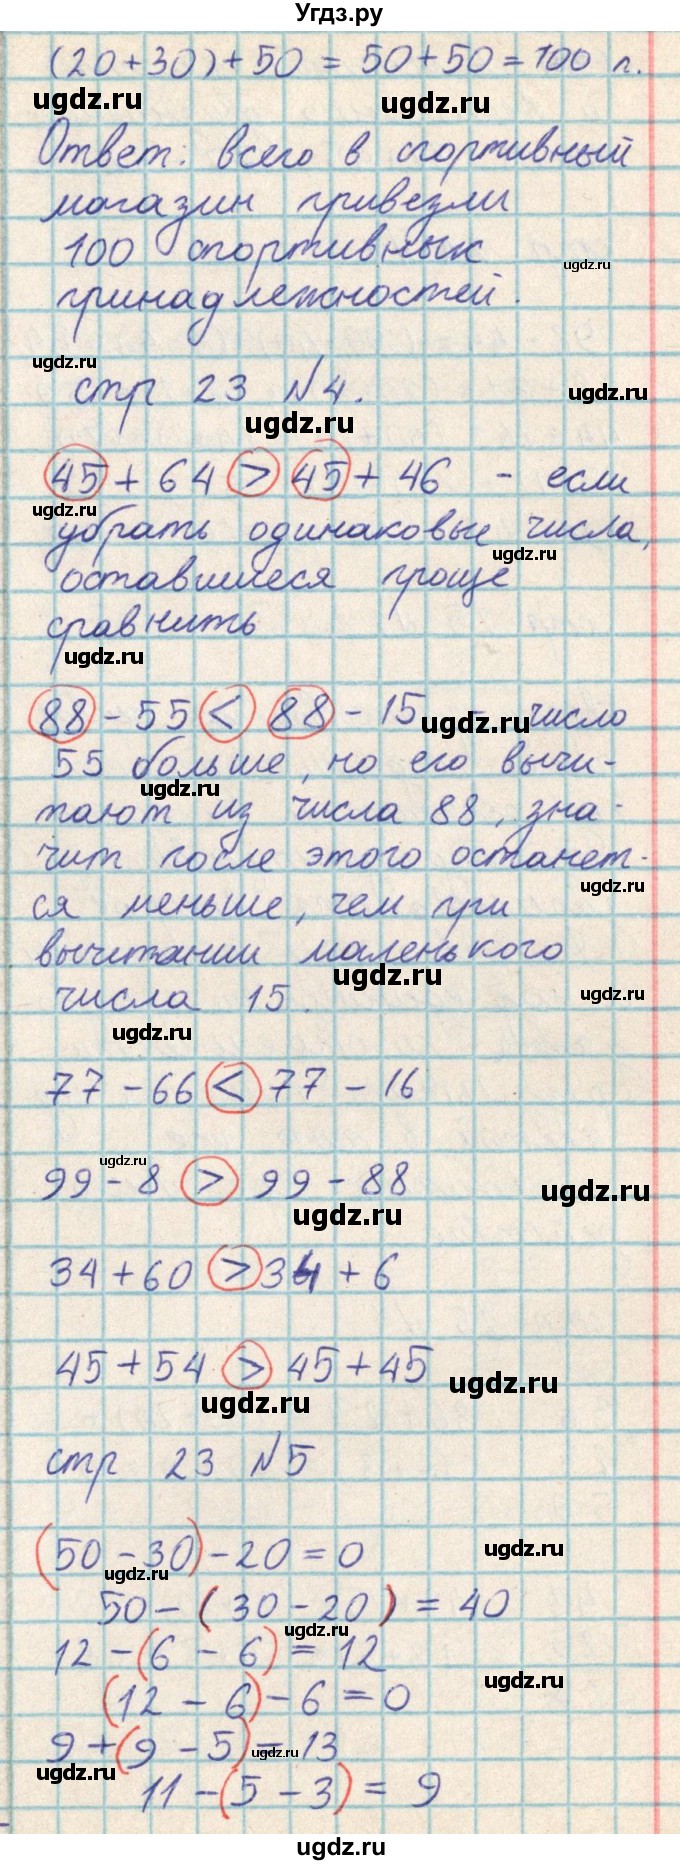 Угдз.ру
(20+30)+50 = 50+50=100 п.
ugdz.ru ugdz.ru
Ответ: всего в спортивный
магазин привезли
100 спортивных
ugdz.ru
принадлежностей.
ugdz.ru
стр 23 №4.
ugdz.ru ugdz.ru
45 + 64 > 45 + 46 - если
ugdz.ru
убрать одинаковые числа,
ugdz.ru
оставшиеся проще
сравнить
ugdz.ru
88 - 55 < 88 - 15 - число
ugdz.ru
55 больше, но его вычи-
ugdz.ru
тают из числа 88, зна-
чит после этого останет-
ugdz.ru
ся меньше, чем при
вычитании маленького
ugdz.ru
числа 15.
ugdz.ru
ugdz.ru
77 - 66 < 77 - 16
ugdz.ru
99 - 8 > 99 - 88
ugdz.ru
ugdz.ru
34 + 60 > 34 + 6
45 + 54 > 45 + 45
ugdz.ru ugdz.ru
стр 23 №5
(50 - 30) - 20 = 0
ugdz.ru ugdz.ru
50 - (30 - 20) = 40
ugdz.ru
12 - (6 - 6) = 12
(12 - 6) - 6 = 0
ugdz.ru
9 + (9 - 5) = 13
ugdz.ru ugdz.ru
11 - (5 - 3) = 9
ugdz.ru